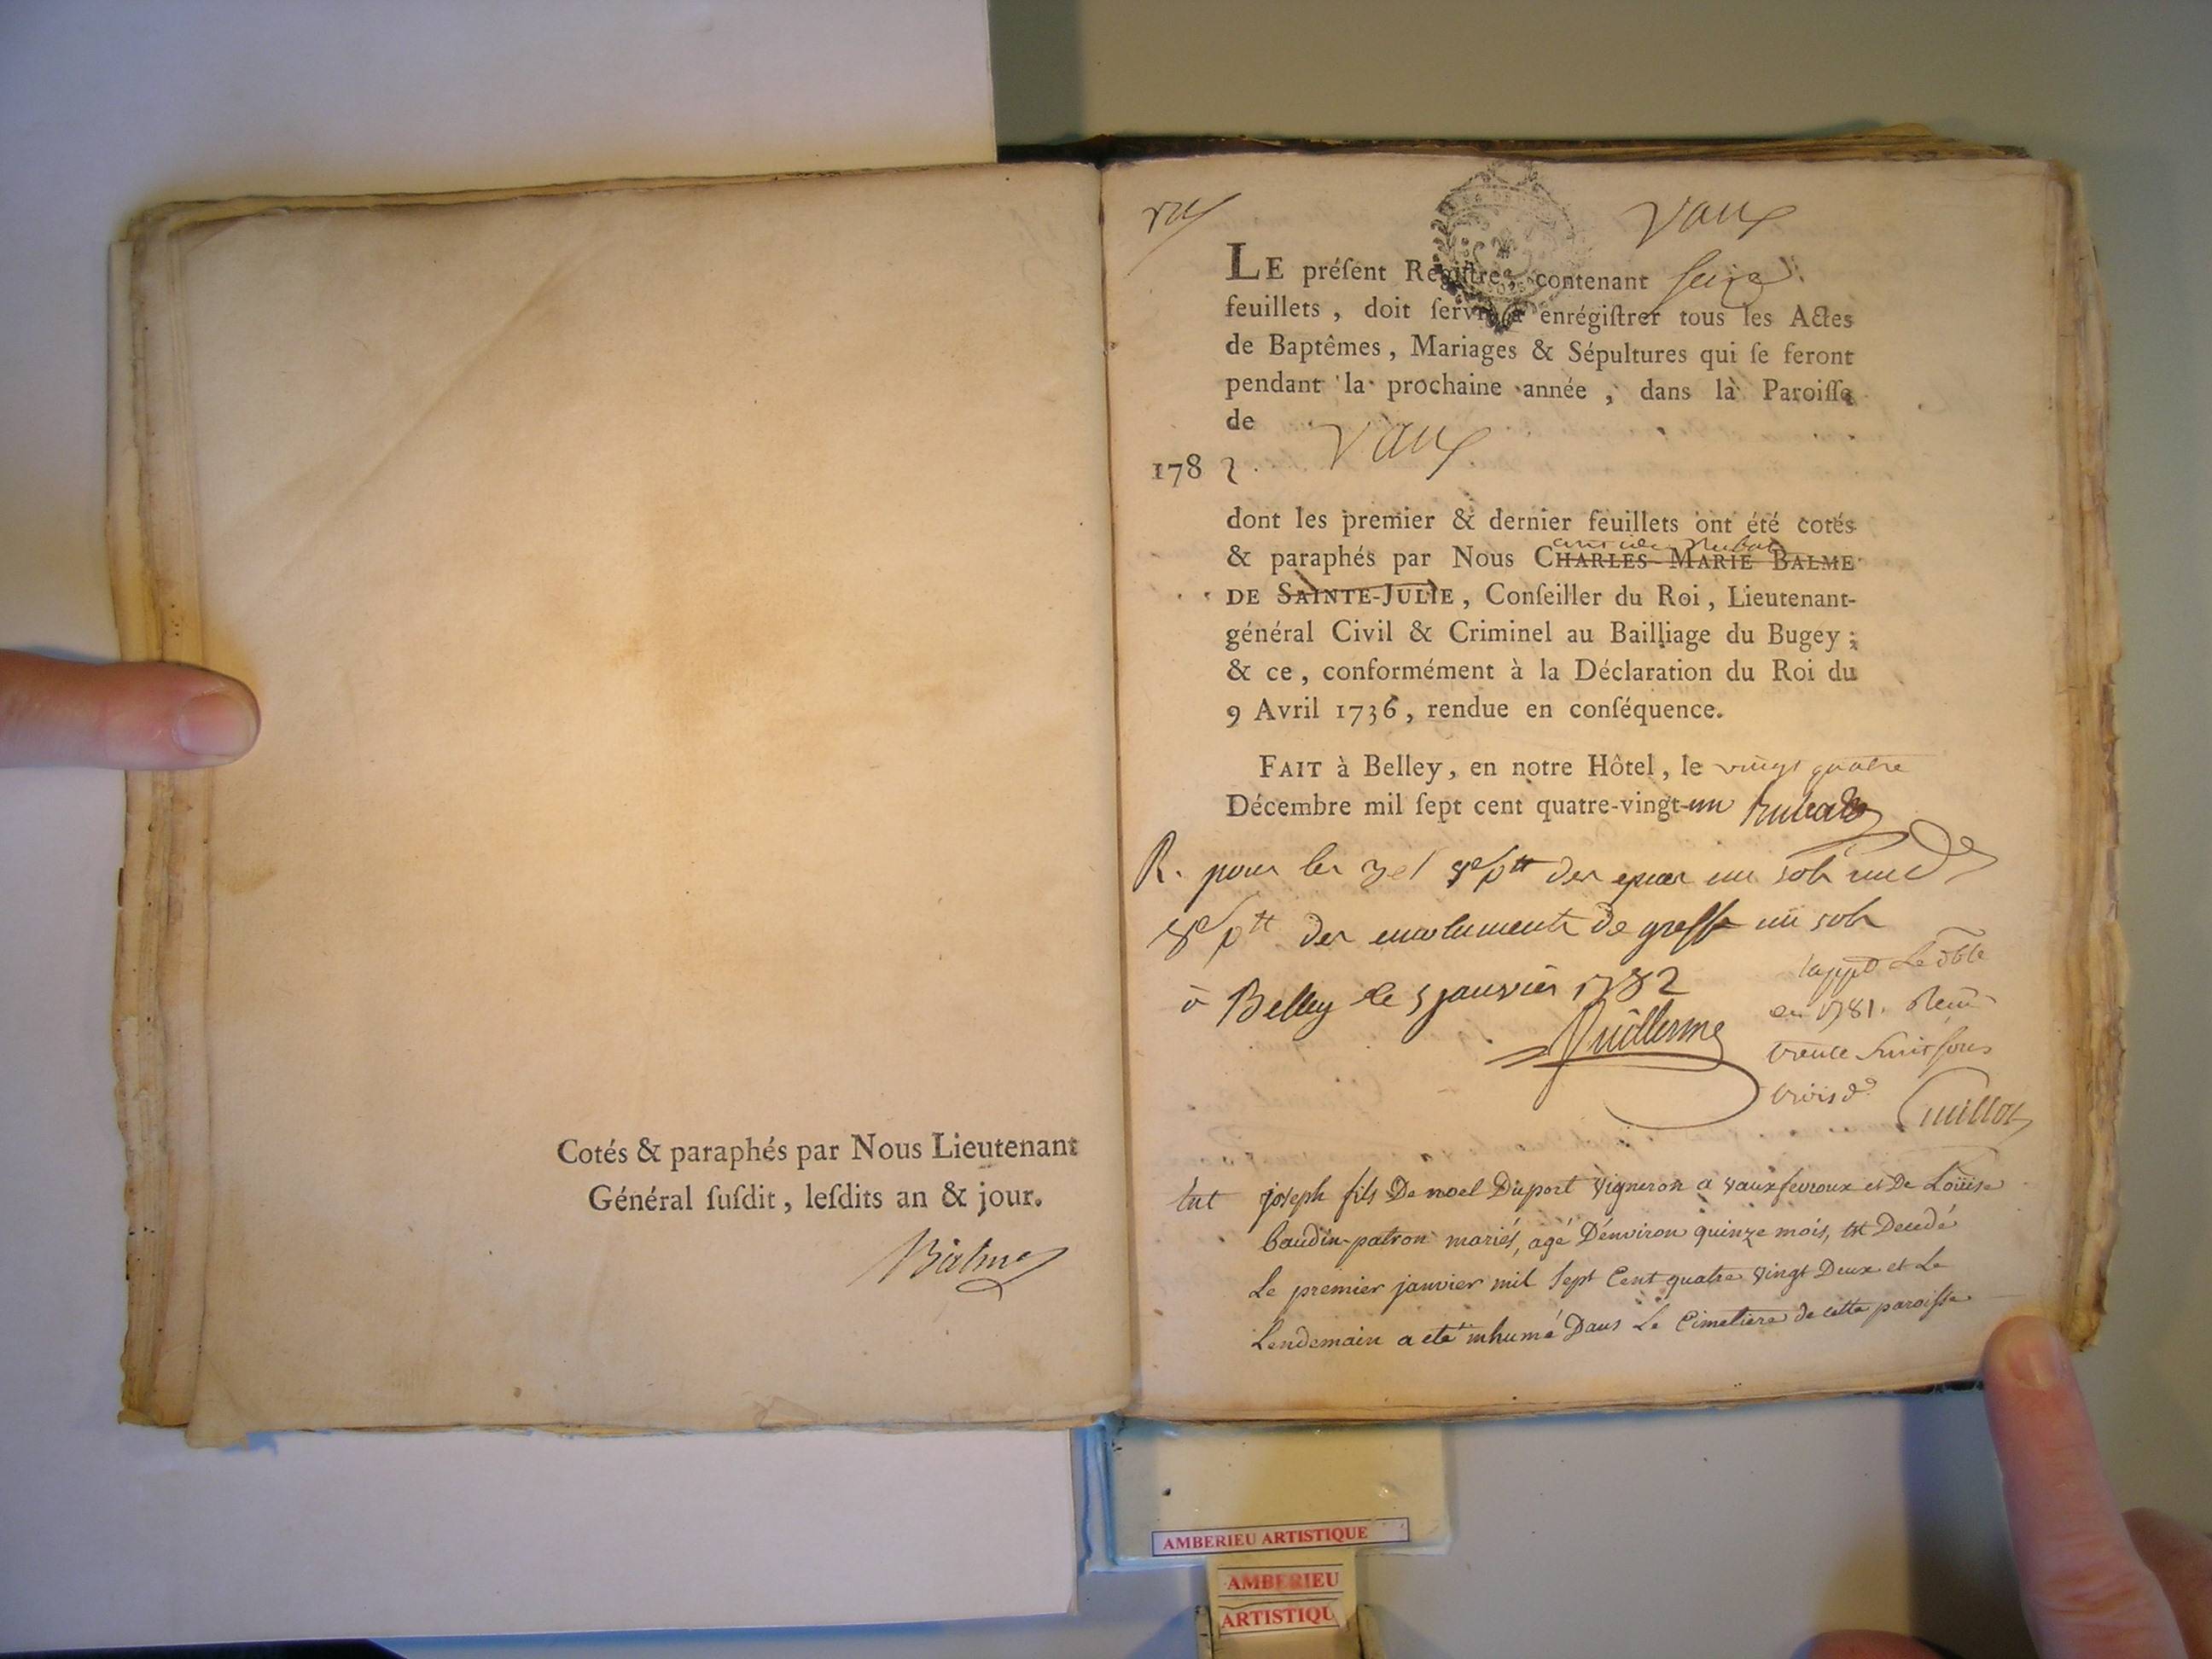 Cotés & paraphés par Nous Lieutenant
Général ſuſdit, leſdits an & jour.
Balme
Vaux
LE préſent Regiſtre, contenant ſeize
feuillets, doit ſervir à enrégiſtrer tous les Actes
de Baptêmes, Mariages & Sépultures qui ſe feront
pendant la prochaine année, dans la Paroiſſe
de Vaux
178 2.
dont les premier & dernier feuillets ont été cotés
& paraphés par Nous CHARLES-MARIE BALME
DE SAINTE-JULIE, Conſeiller du Roi, Lieutenant-
général Civil & Criminel au Bailliage du Bugey;
& ce, conformément à la Déclaration du Roi du
9 Avril 1736, rendue en conſéquence.
FAIT à Belley, en notre Hôtel, le vingt quatre
Décembre mil ſept cent quatre-vingt-un
R. pour les 3 et des epices un sols
des emoluments de greffe un sols
à Belley le 5 janvier 1782
Guillerme
en 1781.
trente huit sous
trois d
Guillot
joseph fils De noel Duport Vigneron a vauxfevroux et De Loüise
baudin-patron mariés, agé D'environ quinze mois, est Decedé
Le premier janvier mil Sept Cent quatre Vingt Deux et Le
Lendemain a eté inhumé Dans Le Cimetiere de cette paroisse
AMBERIEU ARTISTIQUE
AMBERIEU
ARTISTIQU